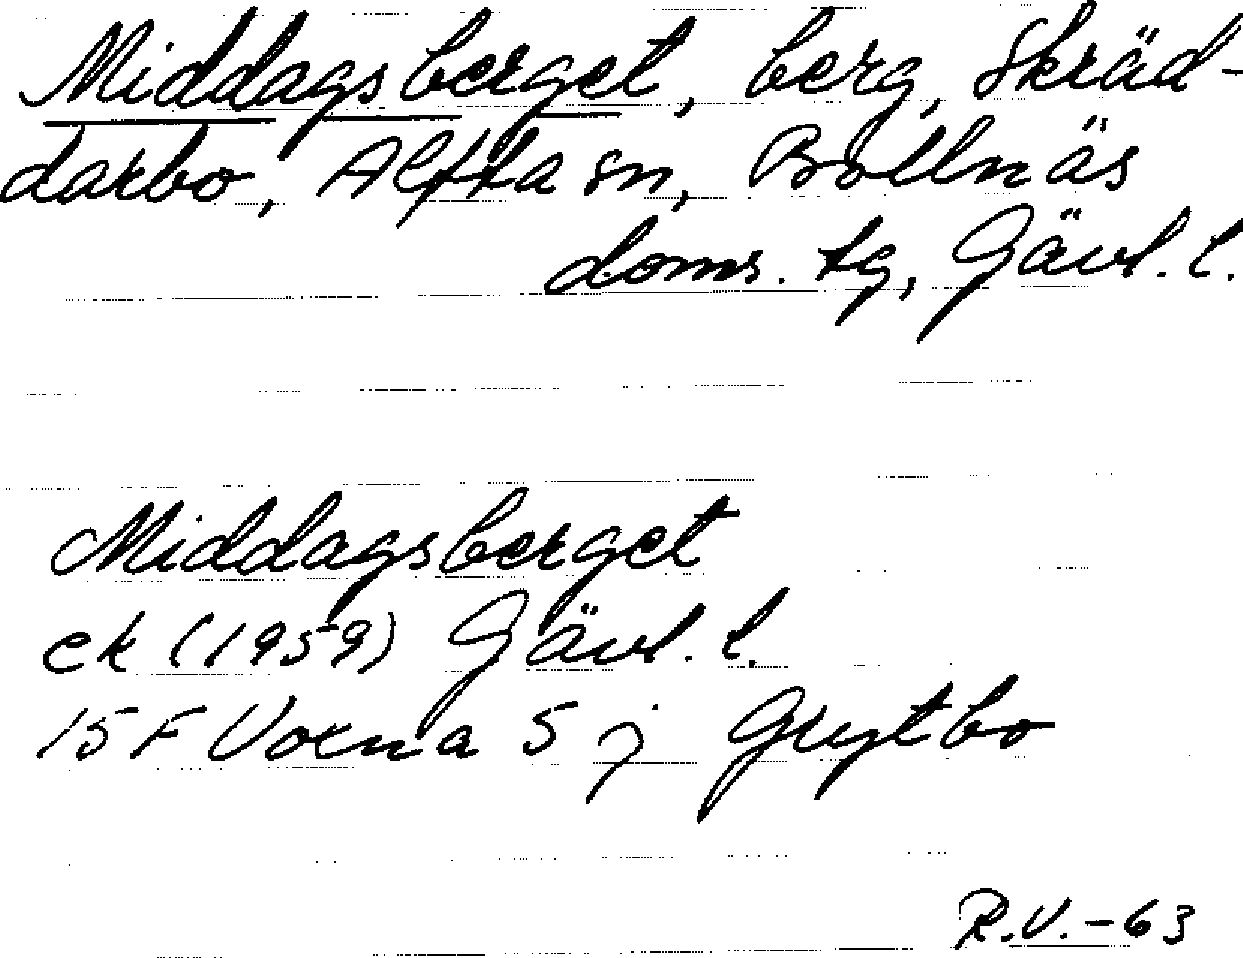 Middagsberget, berg, Skräd-
darbo, Alfta sn, Bollnäs
doms. tg, Gävl. l.
Middagsberget
ek (1959) Gävl. l.
15 F Voxna S j Grytbo
R.V.-63